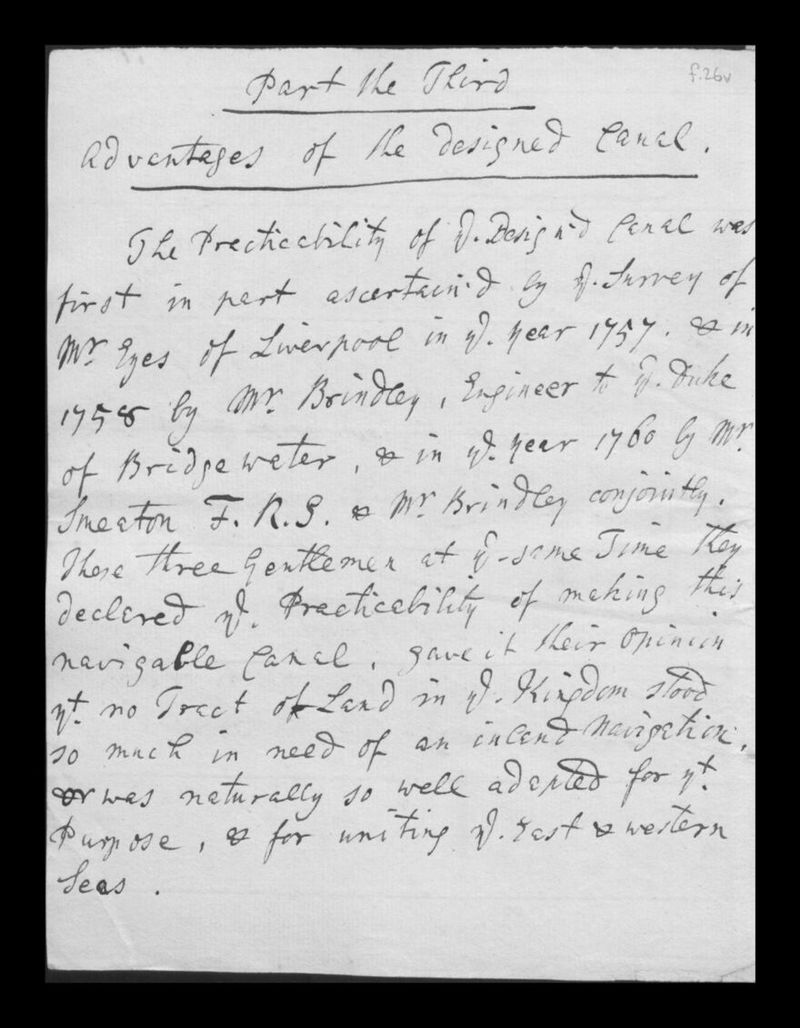 f.26v
Part the Third
Advantages of the designed Canal.
The Practicability of ye. Design'd Canal was
first in part ascertain'd by ye. Survey of
Mr Eyes of Liverpool in ye. year 1757. & in
1758 by Mr. Brindley, Engineer to ye. Duke
of Bridgewater, & in ye. year 1760 by Mr.
Smeaton F. R. S. & Mr Brindley conjointly.
These three Gentlemen at ye same Time they
declared ye. Practicability of making this
navigable Canal, gave it their Opinion
yt. no Tract of Land in ye. Kingdom stood
so much in need of an inland Navigation,
or was naturally so well adapted for yt.
Purpose, & for uniting ye. East & western
Seas.